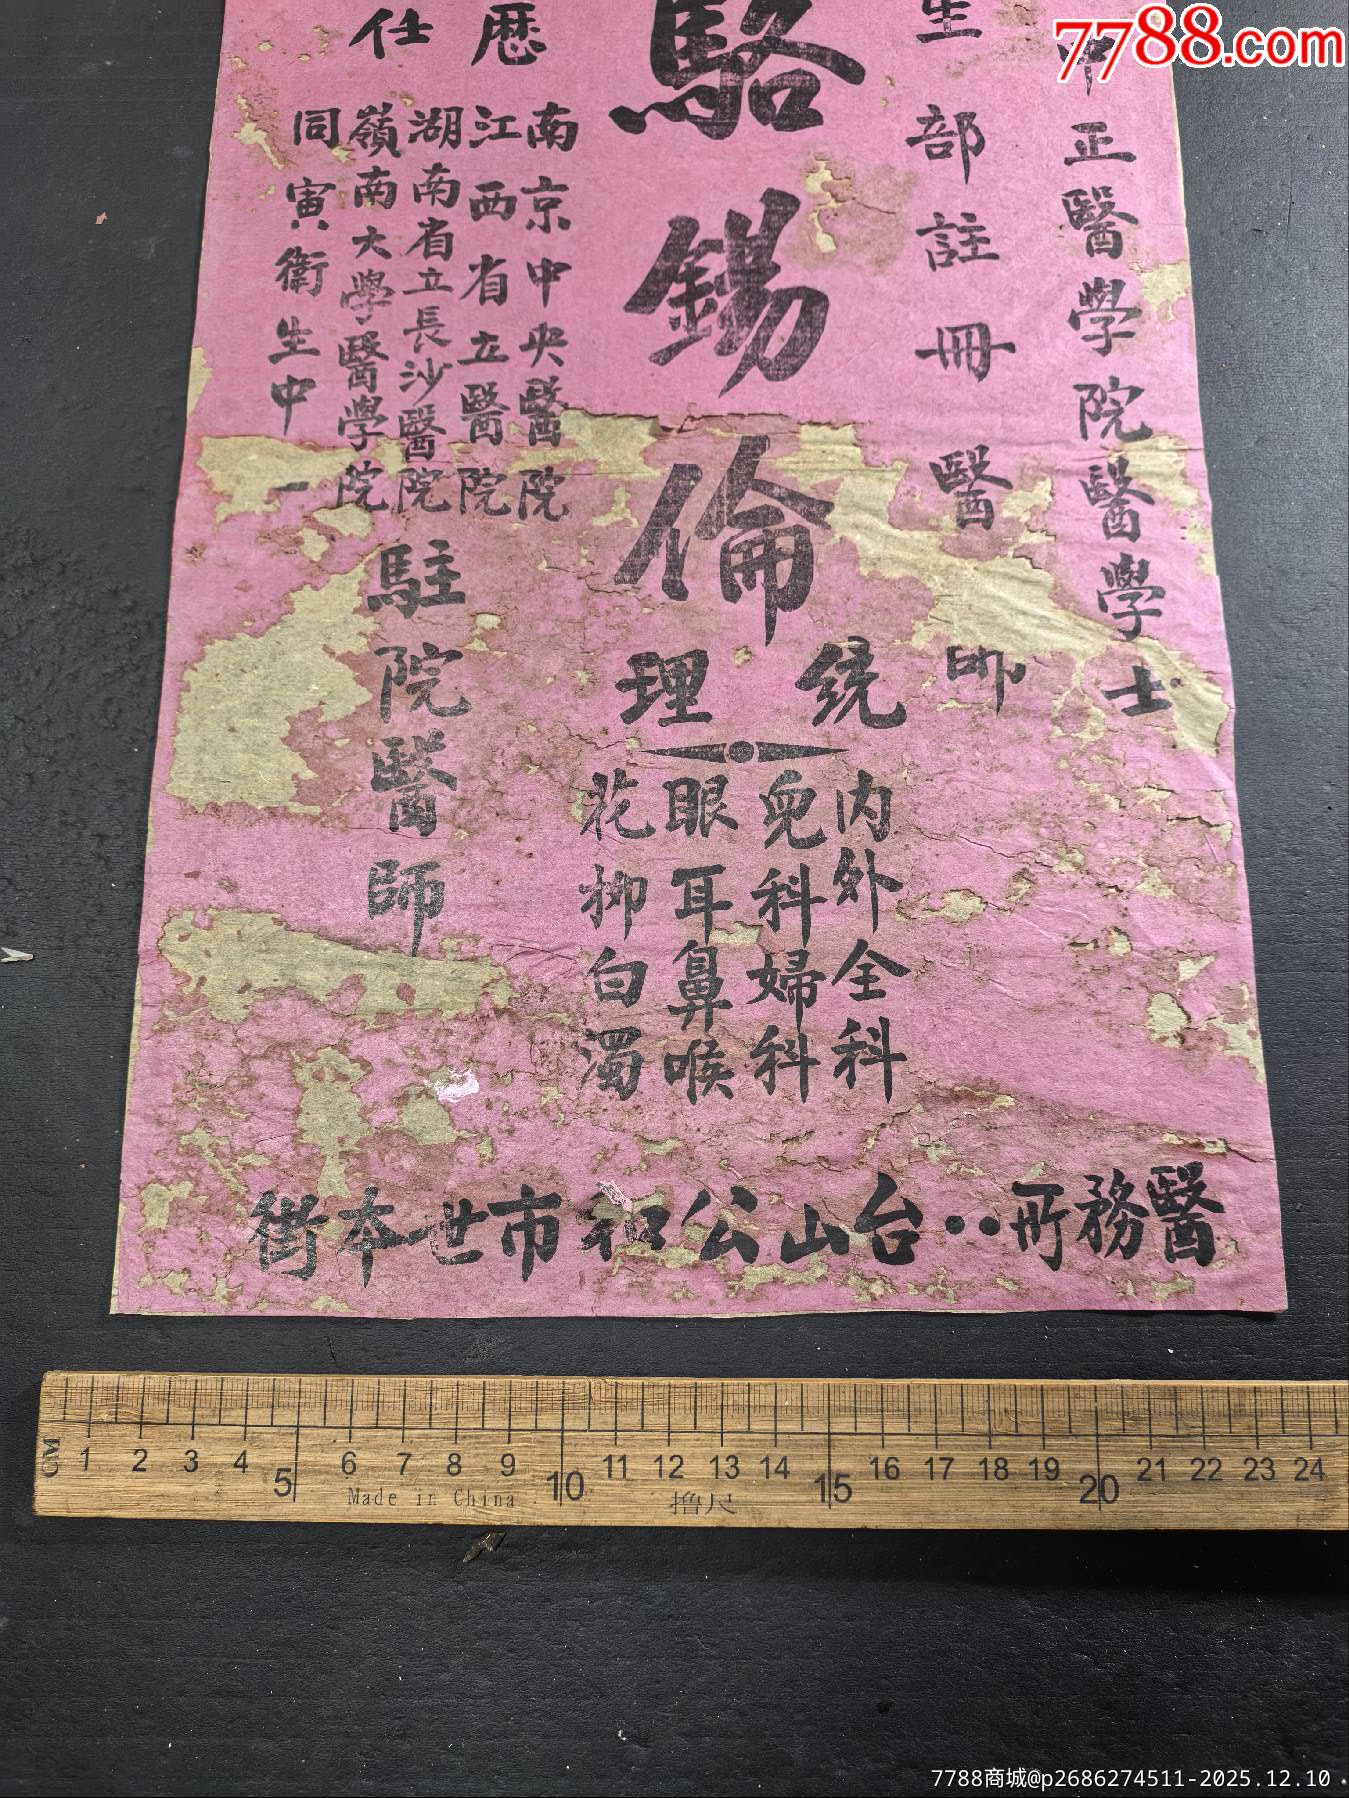 7788.com
中正醫學院醫學士
生部註冊醫師
駱錫倫
統理
內外全科
兒科婦科
眼耳鼻喉
花柳白濁
歷任
南京中央醫院
江西省立醫院
湖南省立長沙醫院
嶺南大學醫學院
同寅衛生中一
駐院醫師
醫務所··台山公和市世本街
CM 1 2 3 4 5 6 7 8 9 10 11 12 13 14 15 16 17 18 19 20 21 22 23 24
Made in China 撸尺
7788商城@p2686274511-2025.12.10